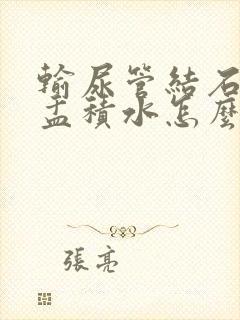 輸尿管結石
盂積水怎麼
張亮